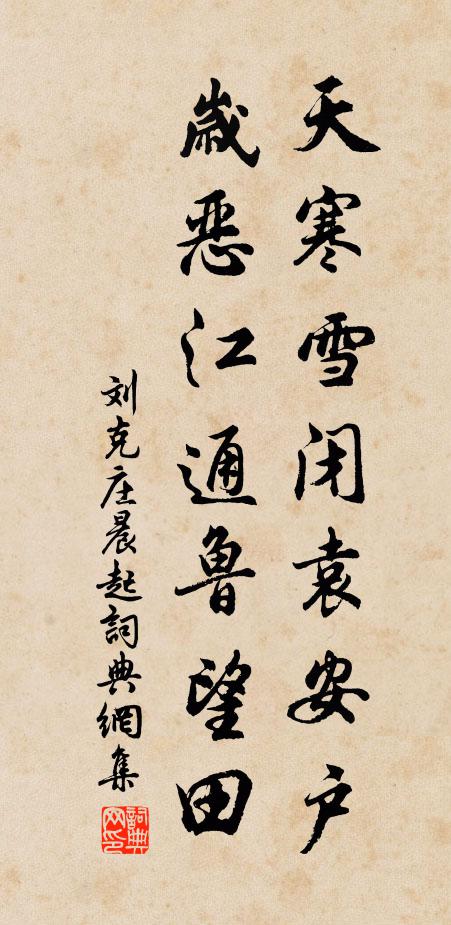 天寒雪闭袁安户
岁恶江通鲁望田
刘克庄晨起詞典網集
詞典网印